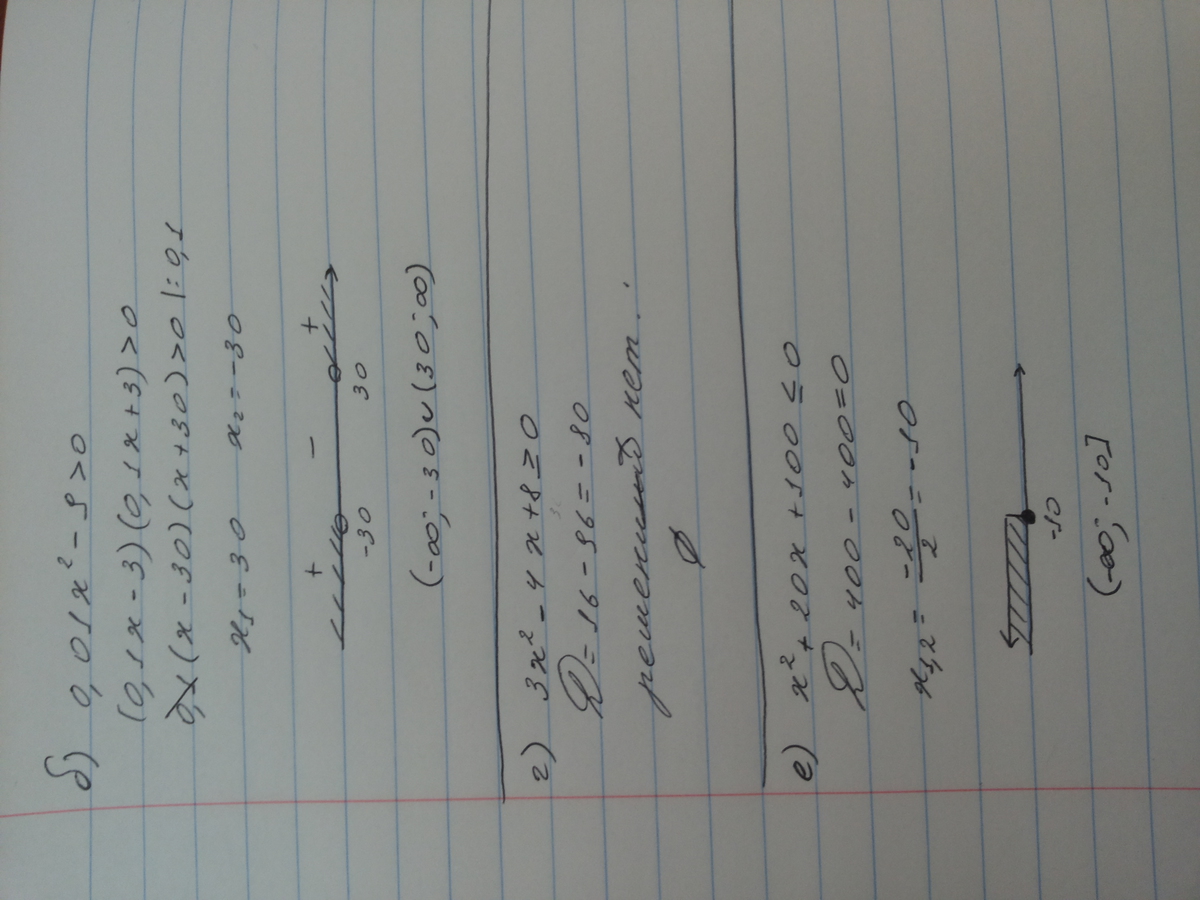 б) 0,01x² - 9 > 0
(0,1x - 3)(0,1x + 3) > 0
0,1(x - 30)(x + 30) > 0 |: 0,1
x₁ = 30 x₂ = -30
+ - +
-30 30
(-∞; -30) ∪ (30; ∞)
г) 3x² - 4x + 8 ≥ 0
D = 16 - 96 = -80
решений нет.
∅
е) x² + 20x + 100 ≤ 0
D = 400 - 400 = 0
x₁,₂ = -20/2 = -10
-10
(-∞; -10]